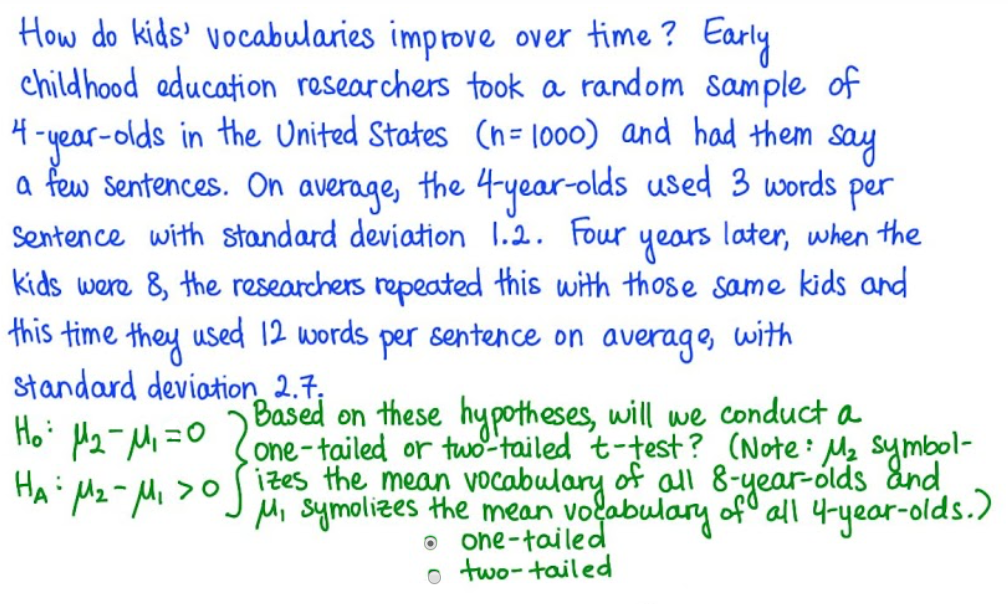 How do kids' vocabularies improve over time? Early
childhood education researchers took a random sample of
4-year-olds in the United States (n=1000) and had them say
a few sentences. On average, the 4-year-olds used 3 words per
sentence with standard deviation 1.2. Four years later, when the
kids were 8, the researchers repeated this with those same kids and
this time they used 12 words per sentence on average, with
standard deviation 2.7.
H₀: μ₂-μ₁=0
H_A: μ₂-μ₁>0
Based on these hypotheses, will we conduct a
one-tailed or two-tailed t-test? (Note: μ₂ symbol-
izes the mean vocabulary of all 8-year-olds and
μ₁ symolizes the mean vocabulary of all 4-year-olds.)
one-tailed
two-tailed